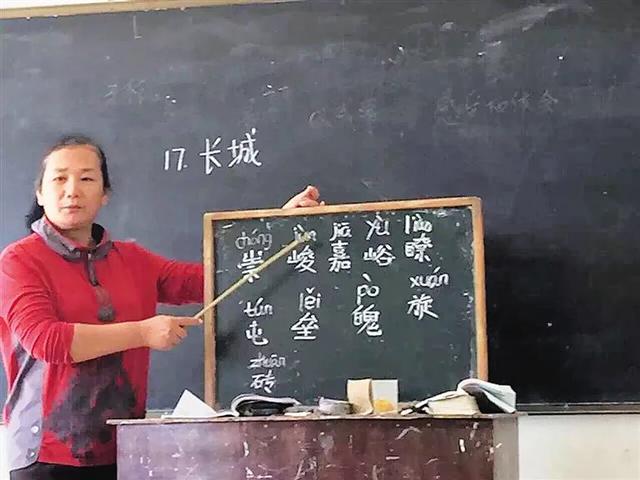 17.长城
chóng jùn jiā yù liào
崇 峻 嘉 峪 瞭
tún lěi pò xuán
屯 垒 魄 旋
zhuān
砖